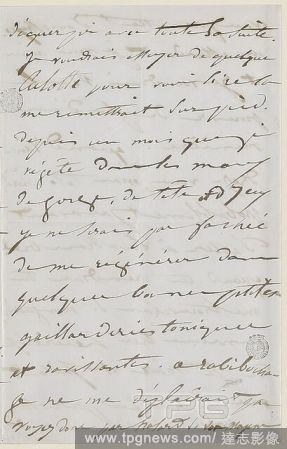 avec toute la suite.
je voudrais essayer de quelque
culotte pour voir si ce la
me remettrait sur pied.
depuis un mois que je
végète dans les maux
de gorge, de tête et d'yeux
je ne serais pas fâché
de me régénérer dans
quelques bonnes petites
gaillarderies toniques
et ravissantes.
ne me déplairait pas
voyez donc par hasard si
TPG
www.tpgnews.com/達志影像